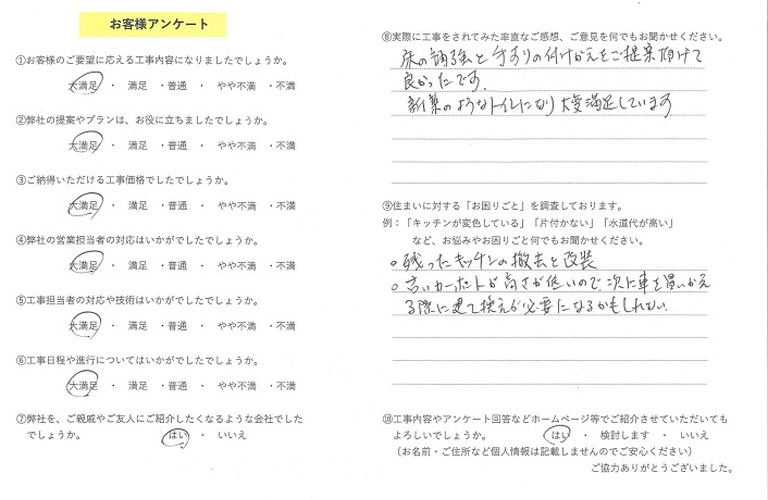 お客様アンケート
①お客様のご要望に応える工事内容になりましたでしょうか。
大満足 ・ 満足 ・普通 ・ やや不満 ・不満
②弊社の提案やプランは、お役に立ちましたでしょうか。
大満足 ・ 満足 ・普通 ・ やや不満 ・不満
③ご納得いただける工事価格でしたでしょうか。
大満足 ・ 満足 ・普通 ・ やや不満 ・不満
④弊社の営業担当者の対応はいかがでしたでしょうか。
大満足 ・ 満足 ・普通 ・ やや不満 ・不満
⑤工事担当者の対応や技術はいかがでしたでしょうか。
大満足 ・ 満足 ・普通 ・ やや不満 ・不満
⑥工事日程や進行についてはいかがでしたでしょうか。
大満足 ・ 満足 ・普通 ・ やや不満 ・不満
⑦弊社を、ご親戚やご友人にご紹介したくなるような会社でした
でしょうか。 はい ・ いいえ
⑧実際に工事をされてみた率直なご感想、ご意見を何でもお聞かせください。
床の補強と手すりの付けかえをご提案頂けて
良かったです。
新築のようなトイレになり大変満足しています
⑨住まいに対する「お困りごと」を調査しております。
例：「キッチンが変色している」「片付かない」「水道代が高い」
など、お悩みやお困りごと何でもお聞かせください。
○残ったキッチンの撤去と改装
○古いカーポートが高さが低いので、次に車を買いかえ
る際に建て換えが必要になるかもしれない
⑩工事内容やアンケート回答などホームページ等でご紹介させていただいても
よろしいでしょうか。 はい ・ 検討します ・ いいえ
（お名前・ご住所など個人情報は記載しませんのでご安心ください）
ご協力ありがとうございました。